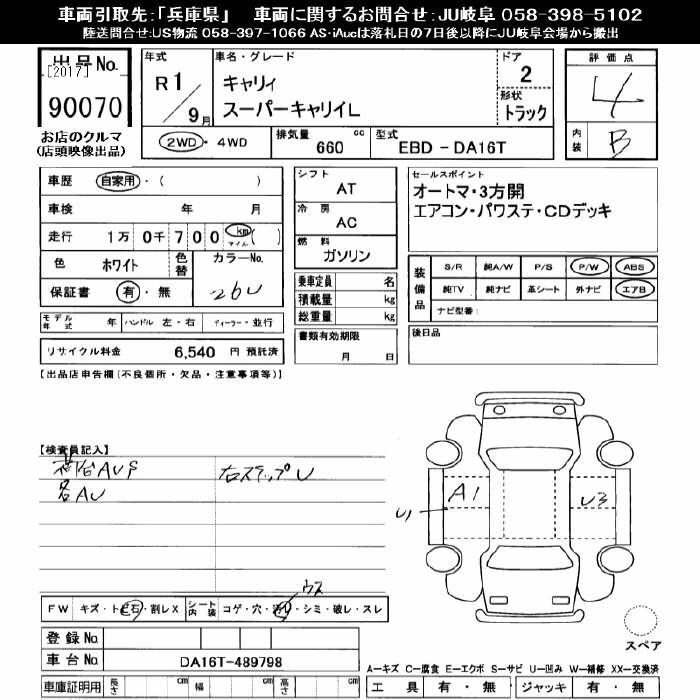 車両引取先:「兵庫県」 車両に関するお問合せ:JU岐阜 058-398-5102
陸送問合せ:US物流 058-397-1066 AS・iAucは落札日の7日後以降にJU岐阜会場から搬出
出品No.
[2017]
90070
お店のクルマ
(店頭映像出品)
年式 車名・グレード ドア 評価点
R1/9月 キャリィ 2 4
スーパーキャリイL 形状 トラック
2WD・4WD 排気量 660 cc 型式 EBD-DA16T 内装 B
車歴 自家用・( )
車検 年 月
走行 1万 0千 7 0 0 km マイル ( )
色 ホワイト 色替 カラーNo.
保証書 有・無 26U
モデル年式 年 ハンドル 左・右 ディーラー・並行
リサイクル料金 6,540 円 預託済
シフト AT
冷房 AC
燃料 ガソリン
乗車定員 名
積載量 kg
総重量 kg
書類有効期限
月 日
セールスポイント
オートマ・3方開
エアコン・パワステ・CDデッキ
装備品 S/R 純A/W P/S P/W ABS
純TV 純ナビ 革シート 外ナビ エアB
ナビ型番:
後日品
【出品店申告欄(不良個所・欠品・注意事項等)】
【検査員記入】
荷台AUS 右ステップU
各AU
A1 U3
U1
ウス
FW キズ・トビ石・割レX シート内装 コゲ・穴・汚レ・シミ・破レ・スレ
登録No.
車台No. DA16T-489798
車庫証明用 長さ cm 幅 cm 高さ cm
スペア
A-キズ C-腐食 E-エクボ S-サビ U-凹み W-補修 XX-交換済
工具 有・無 ジャッキ 有・無